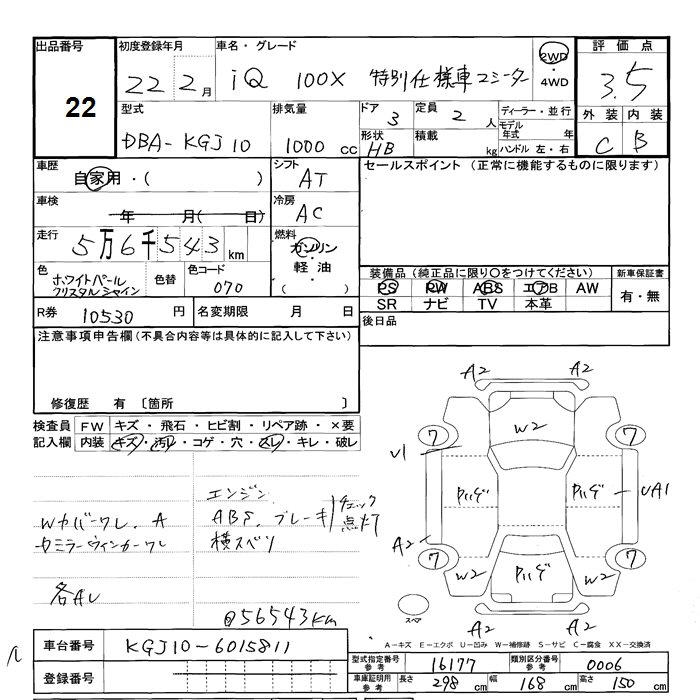 出品番号 初度登録年月 車名・グレード 評価点
22
22 2月 iQ 100X 特別仕様車 2シーター 2WD・4WD 3.5
型式 排気量 ドア 3 定員 2人 ディーラー・並行 外装 内装
DBA-KGJ10 1000cc 形状 HB 積載 kg モデル年式 年 C B
ハンドル 左・右
車歴 自家用・( ) シフト AT セールスポイント (正常に機能するものに限ります)
車検 年 月( 日) 冷房 AC
走行 5万6千543km 燃料 ガソリン・軽油 ( )
色 ホワイトパールクリスタルシャイン 色替 色コード 070
装備品(純正品に限り○をつけてください) 新車保証書
PS PW ABS エアB AW 有・無
SR ナビ TV 本革
R券 10530円 名変期限 月 日 後日品
注意事項申告欄(不具合内容等は具体的に記入して下さい)
修復歴 有 〔箇所 〕
検査員記入欄 FW キズ・飛石・ヒビ割・リペア跡・×要
内装 キズ・汚レ・コゲ・穴・スレ・キレ・破レ
エンジン
Wカバーワレ、A ABS、ブレーキ チェック点灯
ミラーウィンカーワレ 横スベリ
各AU
56543km
A2 A2
7 W2 7
V1 UA1
A2
7 7
W2 W2
A2 A2
スペア
A-キズ E-エクボ U-凹み W-補修跡 S-サビ C-腐食 XX-交換済
車台番号 KGJ10-6015811
登録番号
型式指定番号 参考 16177 類別区分番号 参考 0006
車庫証明用 参考 長さ 298cm 幅 168cm 高さ 150cm